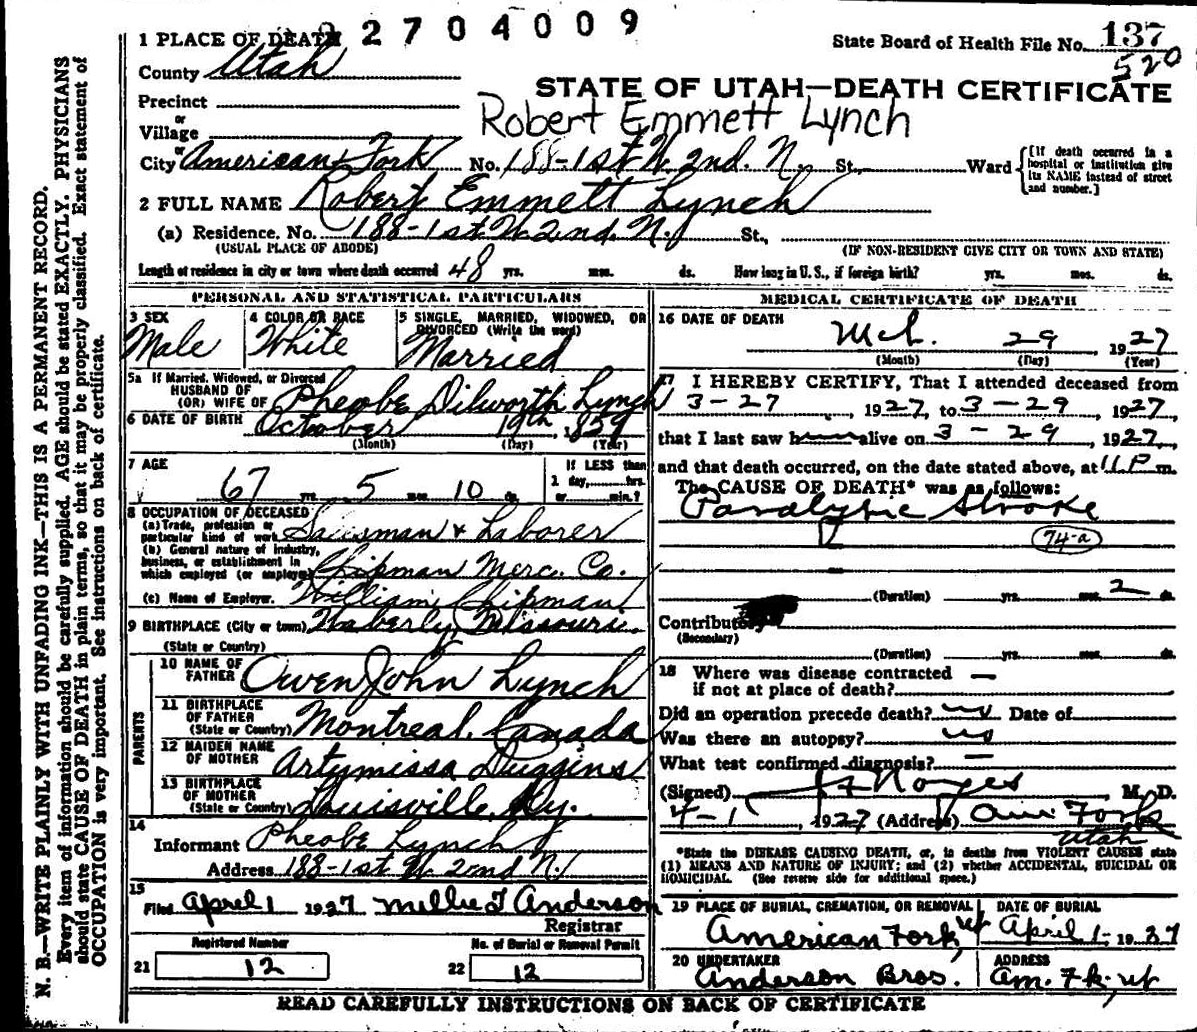 2 2 7 0 4 0 0 9
State Board of Health File No. 137
520
1 PLACE OF DEATH
County Utah
STATE OF UTAH—DEATH CERTIFICATE
Precinct
or
Village
Robert Emmett Lynch
or
City American Fork No. 188-1st W. 2nd. N. St., Ward
[If death occurred in a hospital or institution give its NAME instead of street and number.]
2 FULL NAME Robert Emmett Lynch
(a) Residence. No. 188-1st W. 2nd. N. St.,
(USUAL PLACE OF ABODE) (IF NON-RESIDENT GIVE CITY OR TOWN AND STATE)
Length of residence in city or town where death occurred 48 yrs. mos. ds. How long in U. S., if foreign birth? yrs. mos. ds.
PERSONAL AND STATISTICAL PARTICULARS
3 SEX
Male
4 COLOR OR RACE
White
5 SINGLE, MARRIED, WIDOWED, OR
DIVORCED (Write the word)
Married
5a If Married, Widowed, or Divorced
HUSBAND OF
(OR) WIFE OF Pheobe Dilworth Lynch
6 DATE OF BIRTH October 19th 1859
(Month) (Day) (Year)
7 AGE
67 yrs. 5 mos. 10 ds.
If LESS than
1 day, hrs.
or min.?
8 OCCUPATION OF DECEASED
(a) Trade, profession or
particular kind of work Salesman & Laborer
(b) General nature of industry,
business, or establishment in
which employed (or employer) Chipman Merc. Co.
(c) Name of Employer. William Chipman.
9 BIRTHPLACE (City or town) Waberly, Missouri.
(State or Country)
PARENTS
10 NAME OF
FATHER Owen John Lynch
11 BIRTHPLACE
OF FATHER
(State or Country) Montreal, Canada
12 MAIDEN NAME
OF MOTHER Artymissa Duggins
13 BIRTHPLACE
OF MOTHER
(State or Country) Louisville, Ky.
14
Informant Pheobe Lynch
Address 188-1st W. 2nd N.
15
Filed April 1 1927 Millie T Anderson
Registrar
Registered Number No. of Burial or Removal Permit
21 12 22 12
MEDICAL CERTIFICATE OF DEATH
16 DATE OF DEATH
Mch. 29, 1927
(Month) (Day) (Year)
17 I HEREBY CERTIFY, That I attended deceased from
3-27, 1927, to 3-29, 1927,
that I last saw h alive on 3-29, 1927,
and that death occurred, on the date stated above, at 11 P m.
The CAUSE OF DEATH* was as follows:
Paralytic Stroke
74-a
(Duration) yrs. mos. 2 ds.
Contributory
(Secondary)
(Duration) yrs. mos. ds.
18 Where was disease contracted
if not at place of death? —
Did an operation precede death? no Date of
Was there an autopsy? no
What test confirmed diagnosis? —
(Signed) Noyes M. D.
4-1, 1927 (Address) Am Fork
Utah
*State the DISEASE CAUSING DEATH, or, in deaths from VIOLENT CAUSES state
(1) MEANS AND NATURE OF INJURY; and (2) whether ACCIDENTAL, SUICIDAL OR
HOMICIDAL. (See reverse side for additional space.)
19 PLACE OF BURIAL, CREMATION, OR REMOVAL
American Fork, Ut
DATE OF BURIAL
April 1- 1927
20 UNDERTAKER
Anderson Bros.
ADDRESS
Am. Fk, Ut
READ CAREFULLY INSTRUCTIONS ON BACK OF CERTIFICATE
N. B.—WRITE PLAINLY WITH UNFADING INK—THIS IS A PERMANENT RECORD.
Every item of information should be carefully supplied. AGE should be stated EXACTLY. PHYSICIANS
should state CAUSE OF DEATH in plain terms, so that it may be properly classified. Exact statement of
OCCUPATION is very important. See instructions on back of certificate.